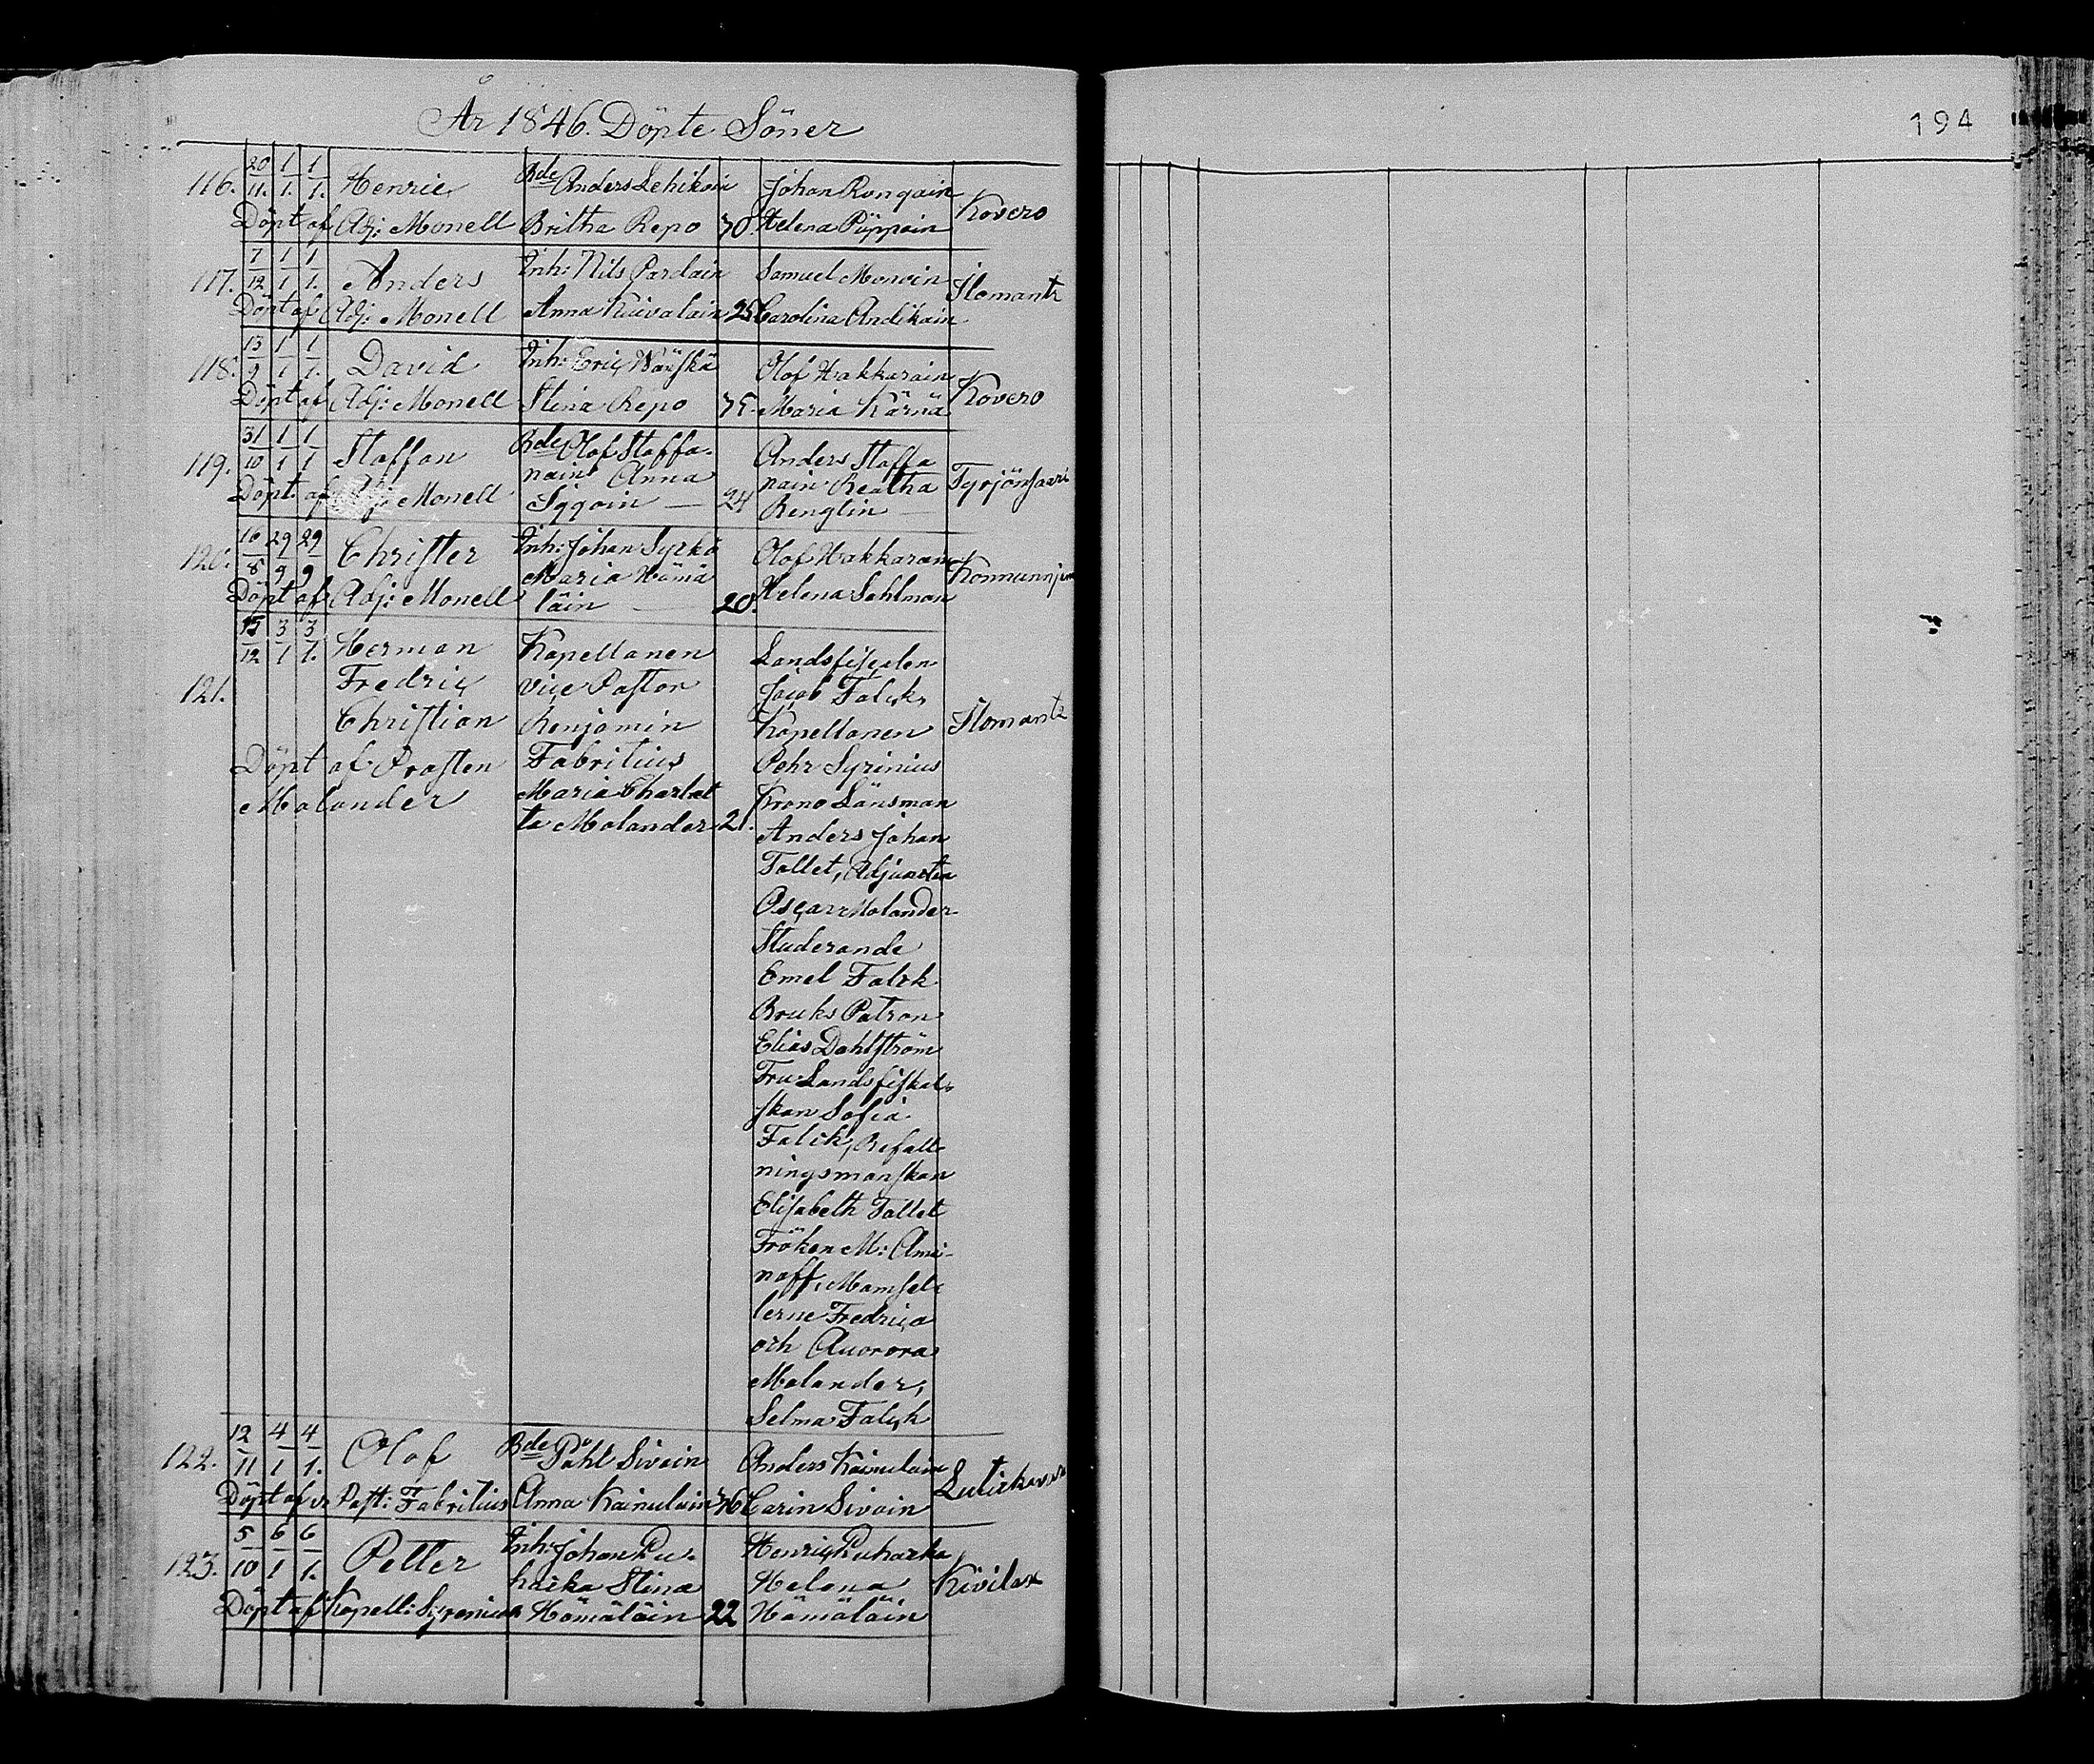 År 1846. Döpte Söner
194
116. 20/11. 1/1. 1/1. Henric Bde Anders Lehikoin Johan Rongain Kovero
Döpt af Adj: Monell Britha Repo 30. Helena Püppoin
117. 7/12 1/1 1/1. Anders Inh: Nils Pardain Samuel Moroin Ilomantz
Döpt af Adj: Monell Anna Kuivalain 25 Carolina Andikain
118. 13/9 1/1 1/1. David Inh: Eric Wäyskä Olof Hakkarain Kovero
Döpt af Adj: Monell Stina Repo 35. Maria Kärnä
119. 31/10 1/1 1/1 Staffan Bde Olof Staffa- Anders Staffa
nain Anna nain Beatha Tyrjönsaari
Döpt af Adj: Monell Siqqoin — 24 Renglin —
120. 16/8 29/9 29/9 Christer Inh: Johan Syrkö Olof Hakkarain
Maria Hämä Konnunnjem
Döpt af Adj: Monell läin — 20. Helena Sahlman
17/12 3/1 3/1. Herman Kapellanen Landsfiscalen
121. Fredric vice Pastor Jacob Falck,
Christian Benjamin Kapellanen Ilomantz
Döpt af Prosten Fabritius Pehr Syrinius
Molander Maria Charlot Krono Länsman
ta Molander 21. Anders Johan
Tallet, Adjuncten
Oscar Molander
Studerande
Emel Falck
Bruks Patron
Elias Dahlström
Fru Landsfiskal-
skan Sofia
Falck, Befall-
ningsmanskan
Elisabeth Tallet
Fröken M: Ami-
noff, Mamsel-
lerne Fredrica
och Auorora
Molander,
Selma Falck
122. 12/11 4/1 4/1. Olof Bde Påhl Sivoin Anders Kainulain
Döpt af v. Past: Fabritius Anna Kainulain 36 Carin Sivoin Lutickavara
123. 5/10 6/1 6/1. Petter Inh: Johan Pu- Henric Puharka
harka Stina Helena Kivilax
Döpt af Kapell: Syrenius Hämäläin 22 Hämäläin